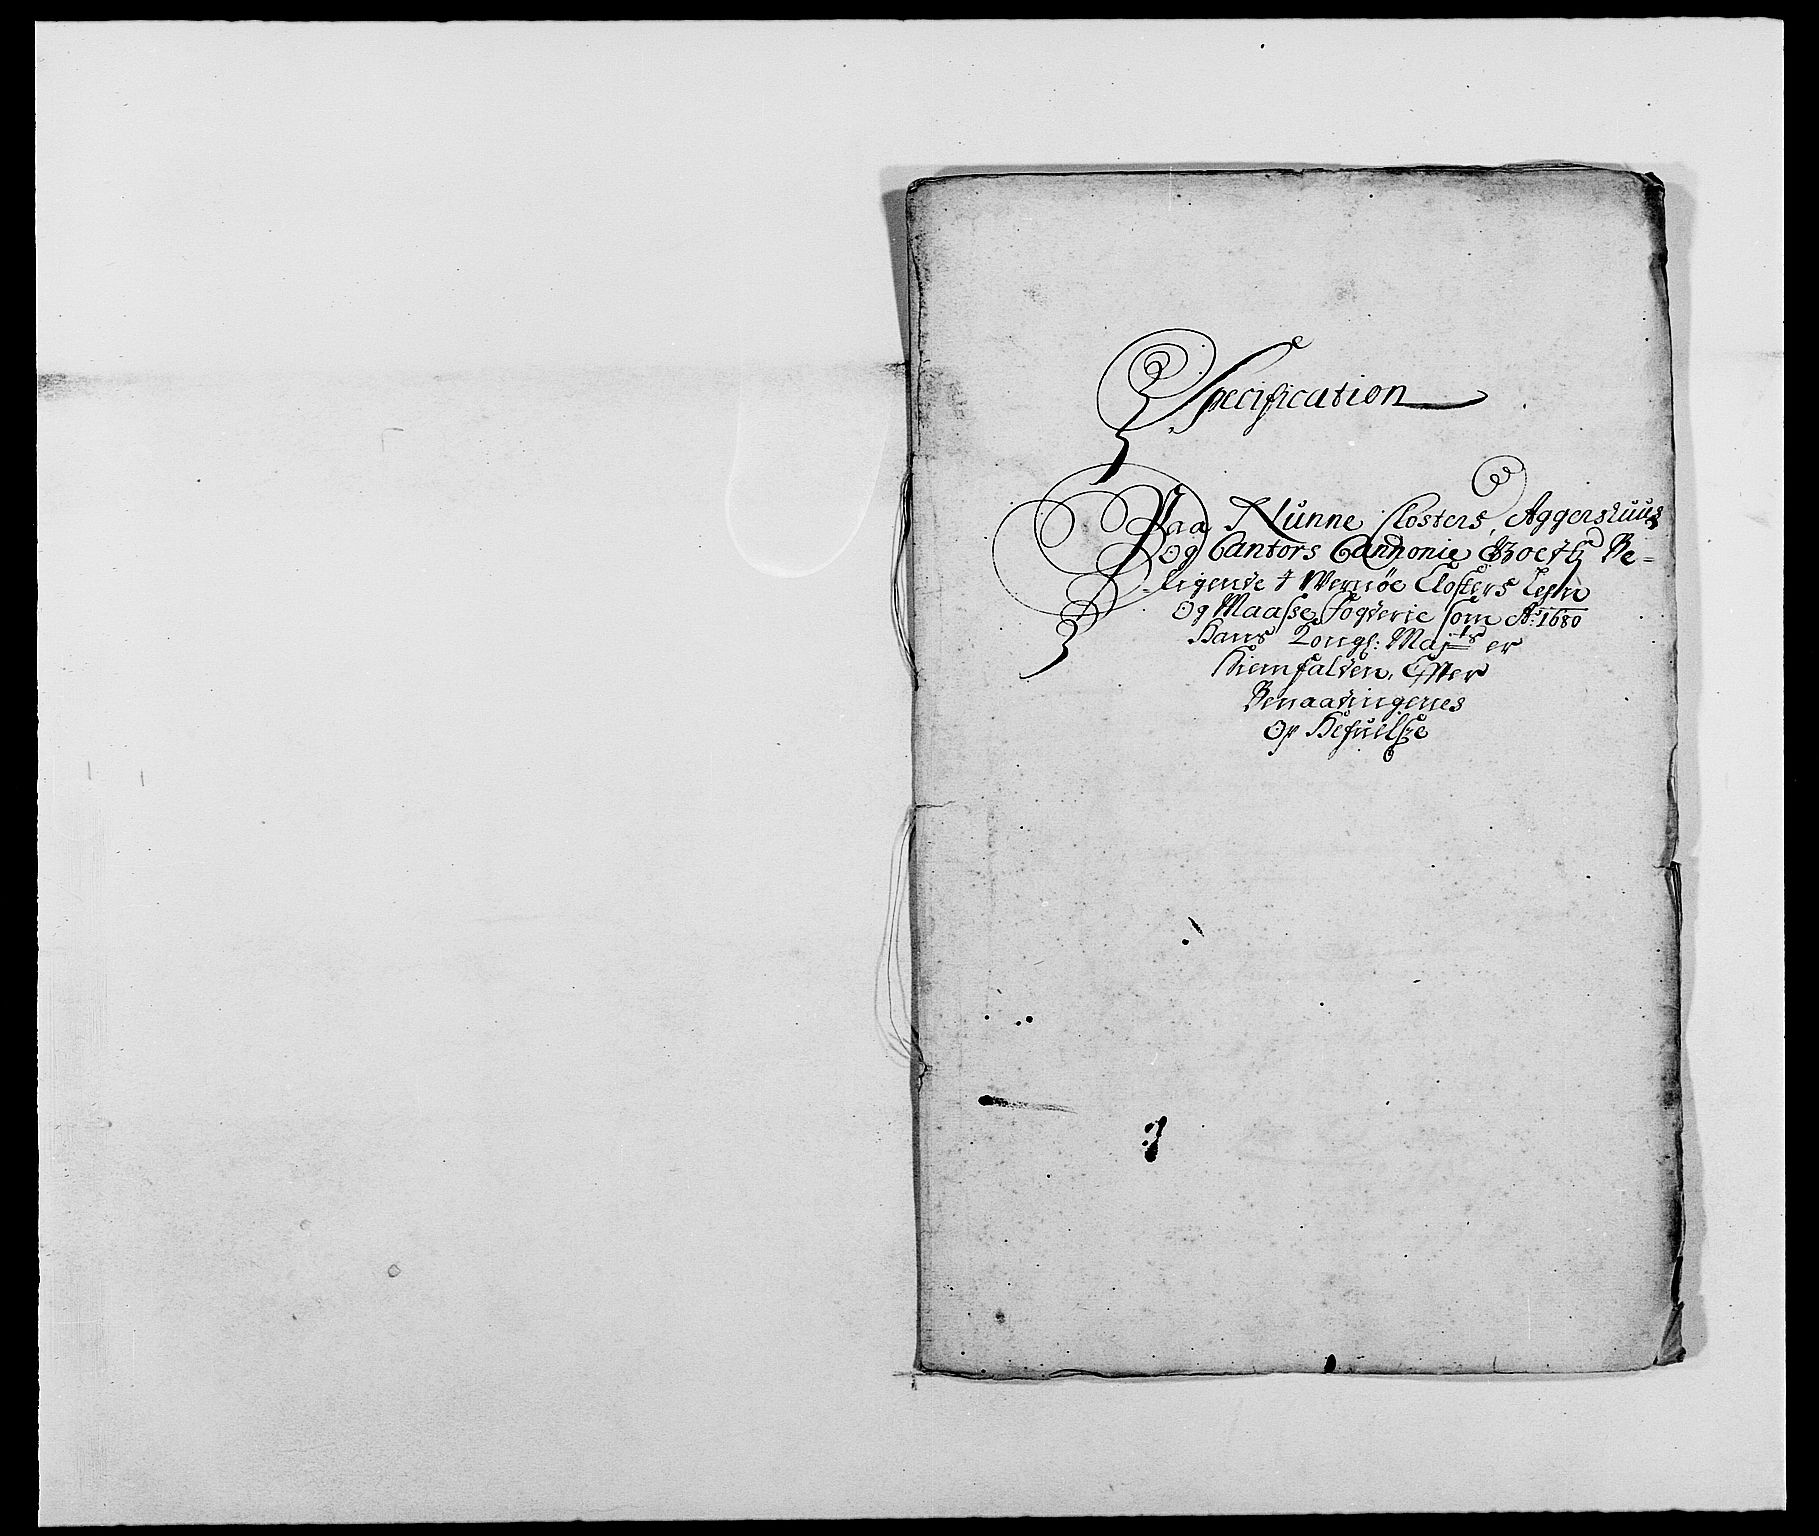 Specification
Paa Nunne Closters, Aggershuus
og Cantors Cannonie Goetz Be-
ligende i Wernöe Closters Lehn
og Maasse Fogterie som Ao: 1680
Hans Kongl: Majts er
hiemfalden, Effter
Benaadingernes